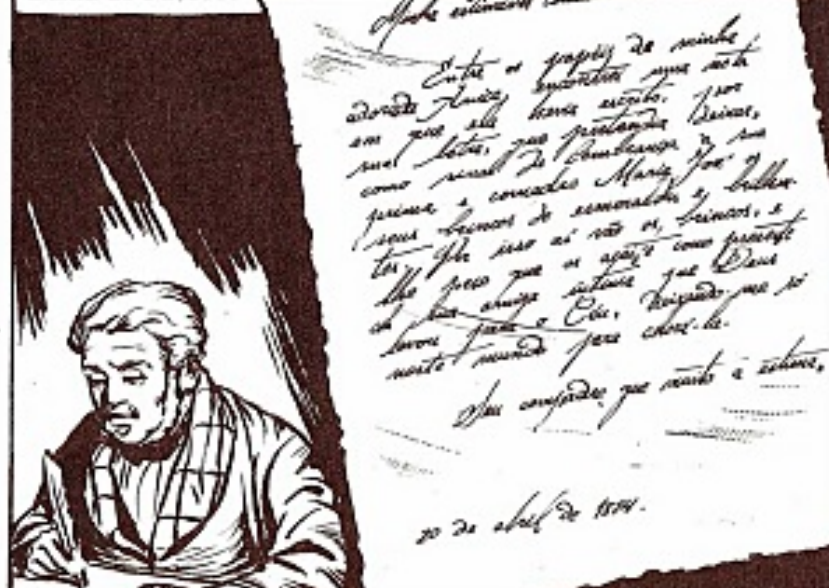 Minha estimavel
Entre os papeis de minha
adorada Anica encontrei uma nota
em que ela havia escrito, por
sua letra, que pretendia deixar,
como sinal de lembrança à sua
prima e comadre Maria José os
seus brincos de esmeralda e brilhan-
tes. Por isso aí vão os brincos, e
lhe peço que os aceite como presente
da sua amiga íntima que Deus
levou para o Céu, deixando-me só
neste mundo para chorá-la.
Seu compadre, que muito a estima,
20 de abril de